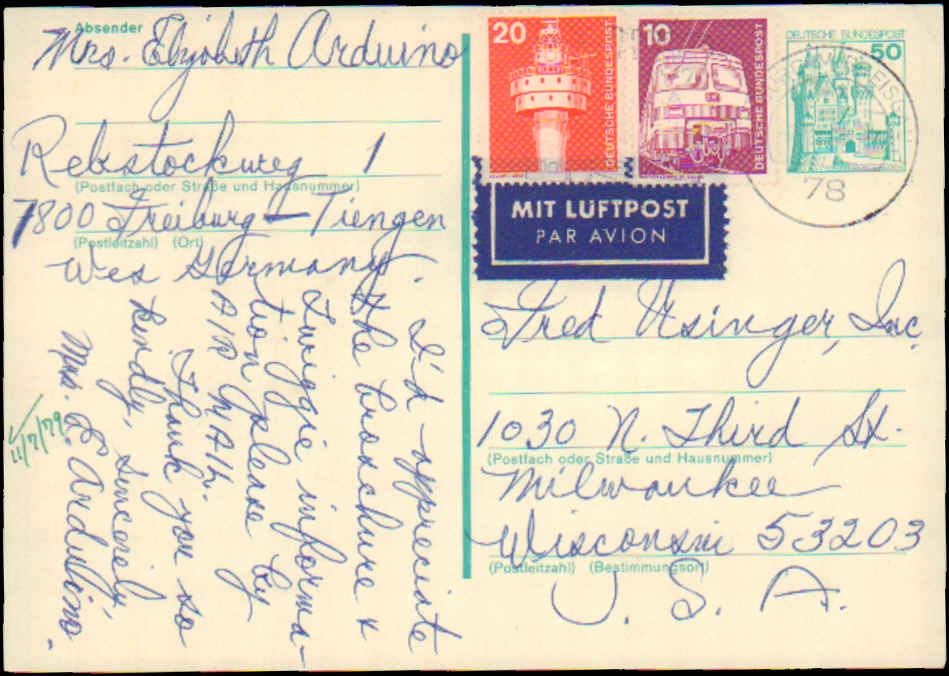 Absender
Mrs. Elizabeth Arduino
Rebstockweg 1
(Postfach oder Straße und Hausnummer)
7800 Freiburg - Tiengen
(Postleitzahl) (Ort)
Wes Germany.
I'd appreciate
the broschure &
Twiggie informa-
tion please by
AIR MAIL.
Thank you so
kindly, Sincerely,
Mrs. E. Arduino.
11/7/79
20
DEUTSCHE BUNDESPOST
10
DEUTSCHE BUNDESPOST
DEUTSCHE BUNDESPOST
50
78
MIT LUFTPOST
PAR AVION
Fred Usinger, Inc.
1030 N. Third St.
(Postfach oder Straße und Hausnummer)
Milwaukee
Wisconsin 53203
(Postleitzahl) (Bestimmungsort)
U. S. A.